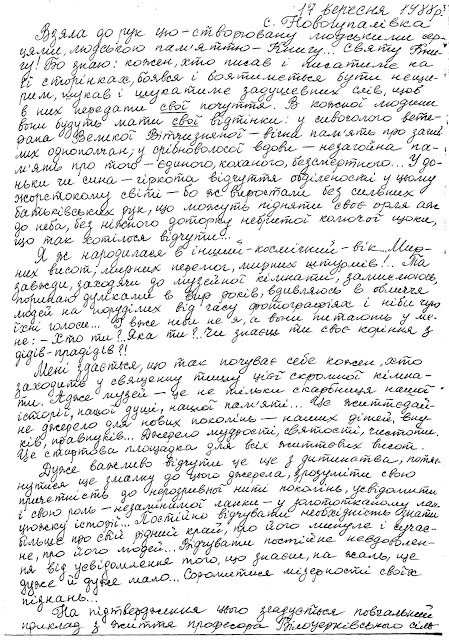 17 вересня 1988р.
с. Новоупалівка
Взяла до рук цю – створювану людськими сер-
цями, людською пам'яттю – Книгу, святу Кни-
гу! Бо знаю: кожен, хто писав і писатиме на
її сторінках, боявся і боятиметься бути нещи-
рим, шукав і шукатиме задушевних слів, щоб
в них передати свої почуття. В кожної людини
вони будуть мати свої відтінки: у сивочолого вете-
рана Великої Вітчизняної – вічна пам'ять про заги-
лих однополчан; у срібноволосої вдови – незагойна па-
м'ять про того – єдиного, коханого, безсмертного... У до-
ньки чи сина – гіркота відчуття обділеності у цьому
жорстокому світі – бо ж виростали без сильних
батьківських рук, що можуть підняти своє орля аж
до неба, без ніжного дотику небритої колючої щоки,
що так хотілося відчути!..
Я ж народилася в інший – космічний – вік... Мир-
них висот, мирних перемог, мирних штурмів!.. Та
завжди, заходячи до музейної кімнати, залишаюсь,
поринаю думками в вир років, вдивляюсь в обличчя
людей на поруділих від часу фотографіях і ніби чую
їхні голоси... І вже ніби не я, а вони питають у ме-
не: – Хто ти? Яка ти?.. Чи знаєш ти своє коріння з
дідів-прадідів?!
Мені здається, що так почуває себе кожен, хто
заходить у священну тишу цієї скромної кімна-
ти. Адже музей – це не тільки скарбниця нашої
історії, нашої душі, нашої пам'яті... Це життєдай-
не джерело для нових поколінь – наших дітей, ону-
ків, правнуків... Джерело мудрості, святості, чистоти.
Це стартова площадка для всіх життєвих висот.
Дуже важливо відчути це ще з дитинства, потяг-
нутися ще змалку до цього джерела, зрозуміти свою
причетність до нерозривної нити поколінь, усвідомити
і свою роль – незамінимої ланки – у золототканому лан-
цюжку історії... Постійно відчувати необхідність знати
більше про свій рідний край, про його минуле і сучас-
не, про його людей... Відчувати постійне невдоволен-
ня від усвідомлення того, що знаєш, на жаль, ще
дуже й дуже мало... Соромитися мізерності своїх
пізнань...
На підтвердження цього згадується повчальний
приклад з життя професора Білоцерківського сіль-